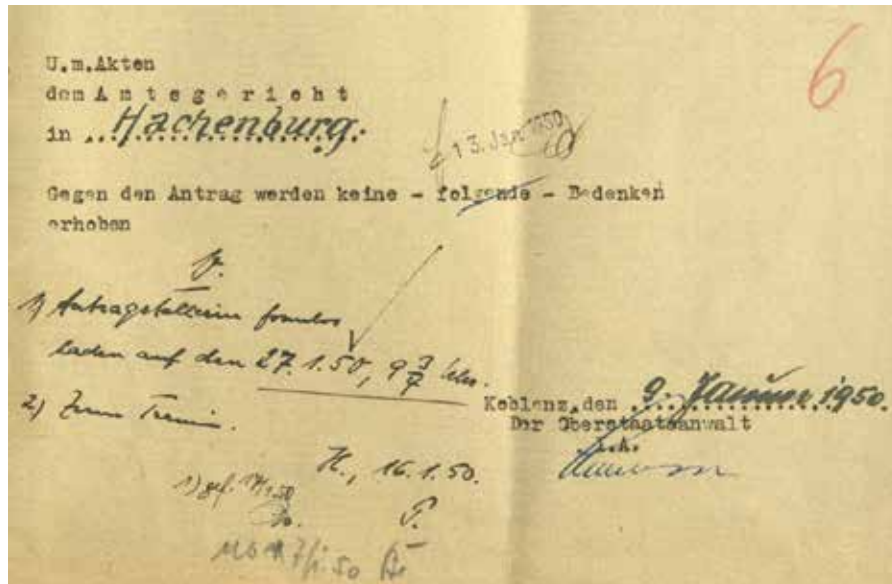 6
U.m.Akten
dem A m t s g e r i c h t
in ..Hachenburg.
13. Jan. 1950
Gegen den Antrag werden keine - folgende - Bedenken
erhoben
V.
1) Antragstellerin formlos
laden auf den 27.1.50, 9 Uhr.
2) Zum Termin.
Koblenz, den 9. Januar 1950.
Der Oberstaatsanwalt
I.A.
H., 16.1.50.
1) gef. 17/1.50